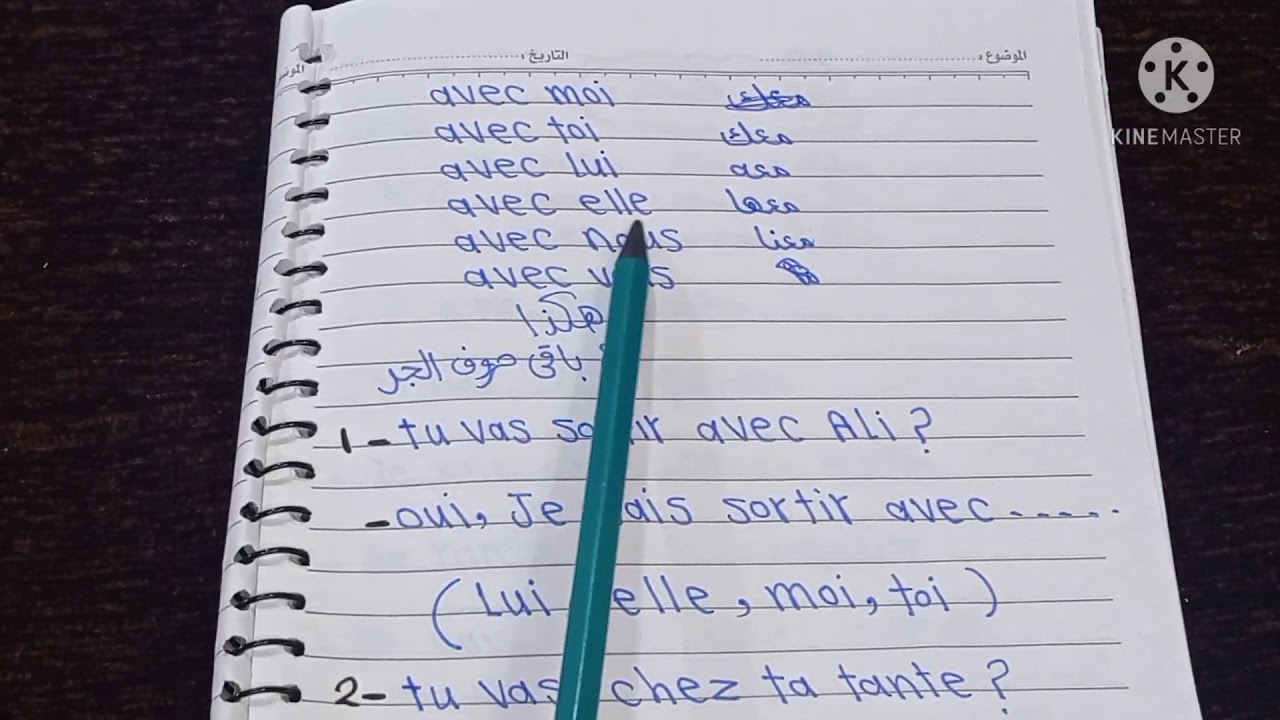 الموضوع: التاريخ:
avec moi
avec toi معك
avec Lui معه
avec elle معها
avec nous معنا
avec
هكذا
باقى حروف الجر
1- tu vas sortir avec Ali?
-oui, Je vais sortir avec-----
(Lui elle, moi, toi)
2- tu vas chez ta tante?
K
KINEMASTER